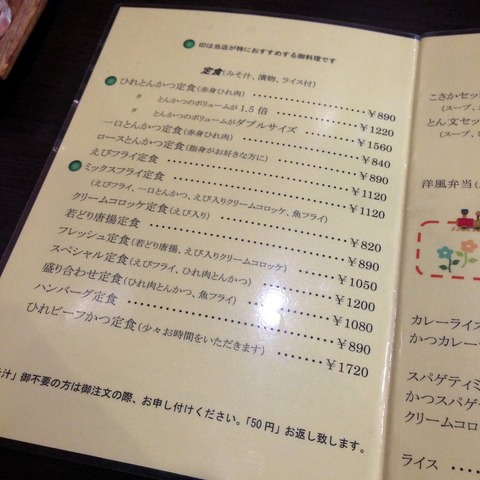 印は当店が特におすすめする御料理です
定食(みそ汁、漬物、ライス付)
ひれとんかつ定食(赤身ひれ肉) ¥890
〃 とんかつのボリュームが1.5倍 ¥1220
〃 とんかつのボリュームがダブルサイズ ¥1560
一口とんかつ定食(赤身ひれ肉) ¥840
ロースとんかつ定食(脂身がお好きな方に) ¥890
えびフライ定食 ¥1120
ミックスフライ定食 ¥1120
(えびフライ、一口とんかつ、えび入りクリームコロッケ、魚フライ)
クリームコロッケ定食(えび入り) ¥820
若どり唐揚定食 ¥890
フレッシュ定食(若どり唐揚、えび入りクリームコロッケ) ¥1050
スペシャル定食(えびフライ、ひれ肉とんかつ) ¥1200
盛り合わせ定食(ひれ肉とんかつ、魚フライ) ¥1080
ハンバーグ定食 ¥890
ひれビーフかつ定食(少々お時間をいただきます) ¥1720
汁」御不要の方は御注文の際、お申し付けください。「50円」お返し致します。
こさかセッ
(スープ、
とん文セッ
(スープ、
洋風弁当(
カレーライス
かつカレー
スパゲティミ
かつスパゲ
クリームコロ
ライス